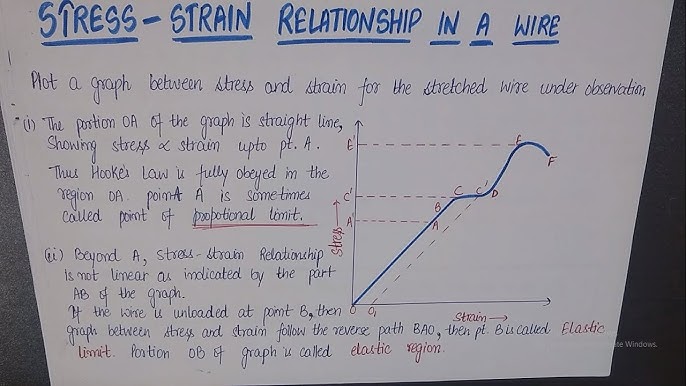 STRESS - STRAIN RELATIONSHIP IN A WIRE
Plot a graph between stress and strain for the stretched wire under observation
(i) The portion OA of the graph is straight line,
Showing stress ∝ strain upto pt. A.
Thus Hooke's Law is fully obeyed in the
region OA. point A is sometimes
called point of propotional limit.
(ii) Beyond A, stress-strain Relationship
is not linear as indicated by the part
AB of the graph.
If the wire is unloaded at point B, then
graph between stress and strain follow the reverse path BAO, then pt. B is called Elastic
limit. Portion OB of graph is called elastic region.
E'
C'
A'
Stress →
E
F
C
C'
D
B
A
O
O₁
Strain →
ate Windows.